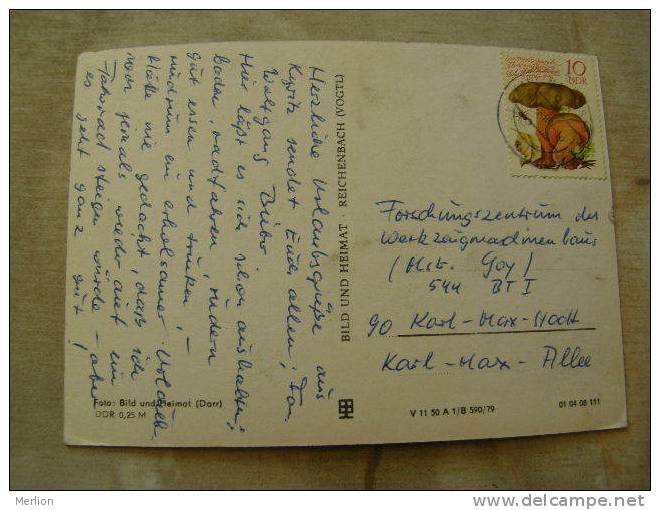 Herzliche Urlaubsgrüße aus
Kyritz sendet Euch allen, Fam.
Wolfgang
Hier läßt es sich schon aushalten;
baden, radfahren, rudern
gut essen und trinken, –
rundrum ein erholsamer Urlaub.
Hätte nie gedacht, daß ich
noch jemals wieder auf ein
Fahrrad steigen würde – aber
es geht ganz gut!
BILD UND HEIMAT · REICHENBACH (VOGTL)
10
DDR
Forschungszentrum des
Werkzeugmaschinenbaus
(Mstr. Goy)
544 BT I
90 Karl-Marx-Stadt
Karl-Marx-Allee
Foto: Bild und Heimat (Darr)
DDR 0,25 M
V 11 50 A 1/B 590/79
01 04 08 111
Merlion
www.delcampe.net